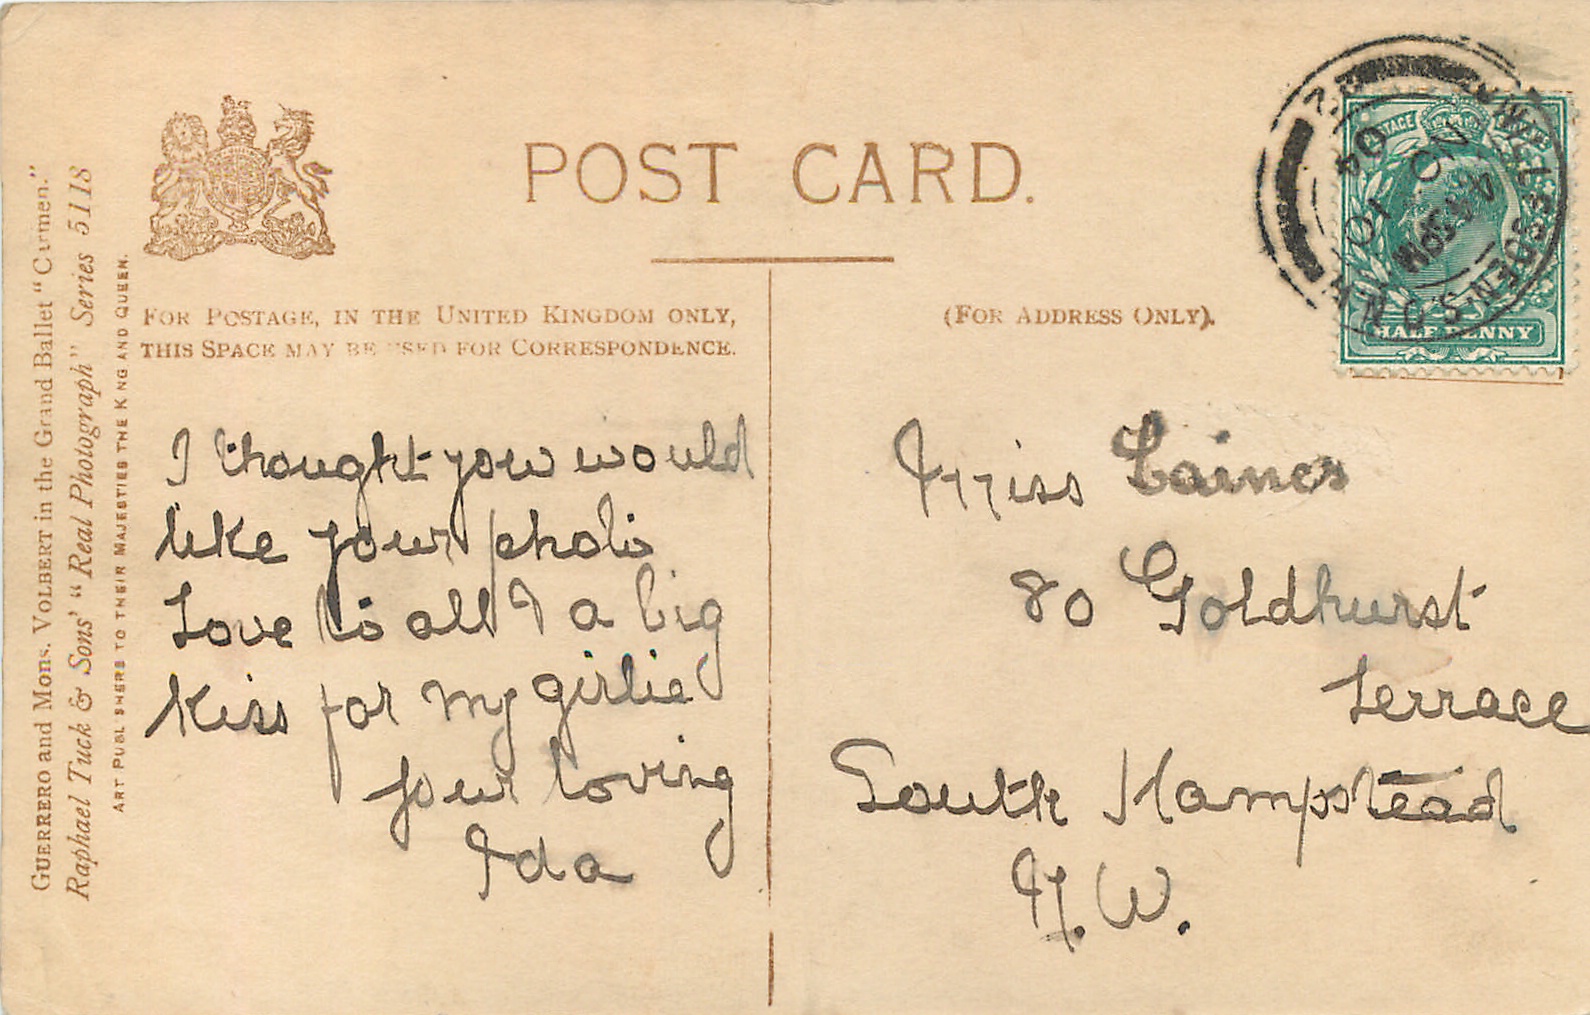 POST CARD.
FOR POSTAGE, IN THE UNITED KINGDOM ONLY,
THIS SPACE MAY BE USED FOR CORRESPONDENCE.
(FOR ADDRESS ONLY).
GUERRERO and Mons. VOLBERT in the Grand Ballet "Carmen."
Raphael Tuck & Sons' "Real Photograph" Series 5118
ART PUBLISHERS TO THEIR MAJESTIES THE KING AND QUEEN.
I thought you would
like your photo
Love to all & a big
kiss for my girlie
Your loving
Ida
Miss Caines
80 Goldhurst
Terrace
South Hampstead
N.W.
WILLESDEN S.O. N.W.
4 45 PM
NO 10
04
POSTAGE
HALF PENNY